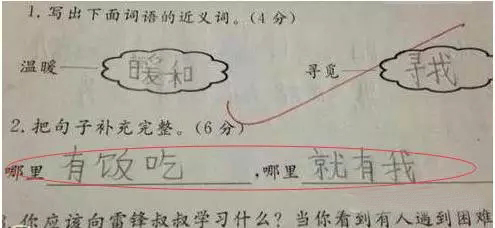 1.写出下面词语的近义词。(4分)
温暖——暖和 寻觅——寻找
2.把句子补充完整。(6分)
哪里有饭吃,哪里就有我
3.你应该向雷锋叔叔学习什么?当你看到有人遇到困难